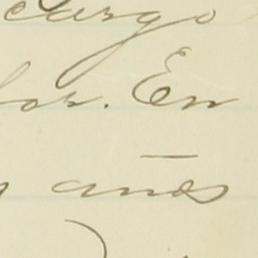 cargo
lor. En
años